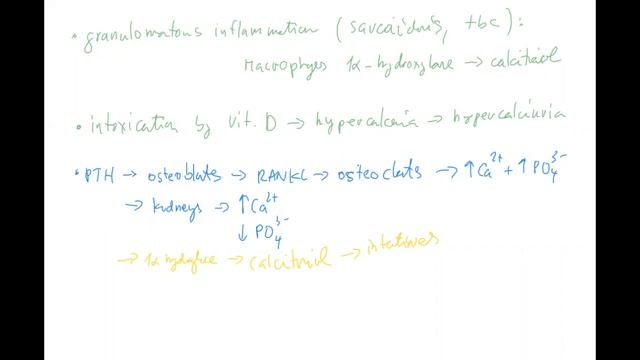 • granulomatous inflammation (sarcoidosis, tbc):
macrophages 1α-hydroxylase → calcitriol
• intoxication by vit. D → hypercalcemia → hypercalciuria
• PTH → osteoblasts → RANKL → osteoclasts → ↑Ca²⁺ + ↑PO₄³⁻
→ kidneys → ↑Ca²⁺
↓PO₄³⁻
→ 1α hydroxylase → calcitriol → intestines